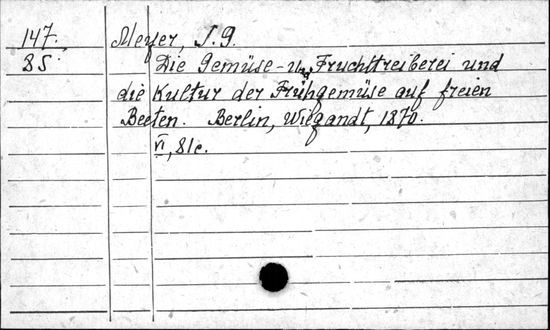 147. Meyer, J. G.
85. Die Gemüse- und Fruchttreiberei und
die Kultur der Frühgemüse auf freien
Beeten. Berlin, Wiegandt, 1870.
VI, 81c.